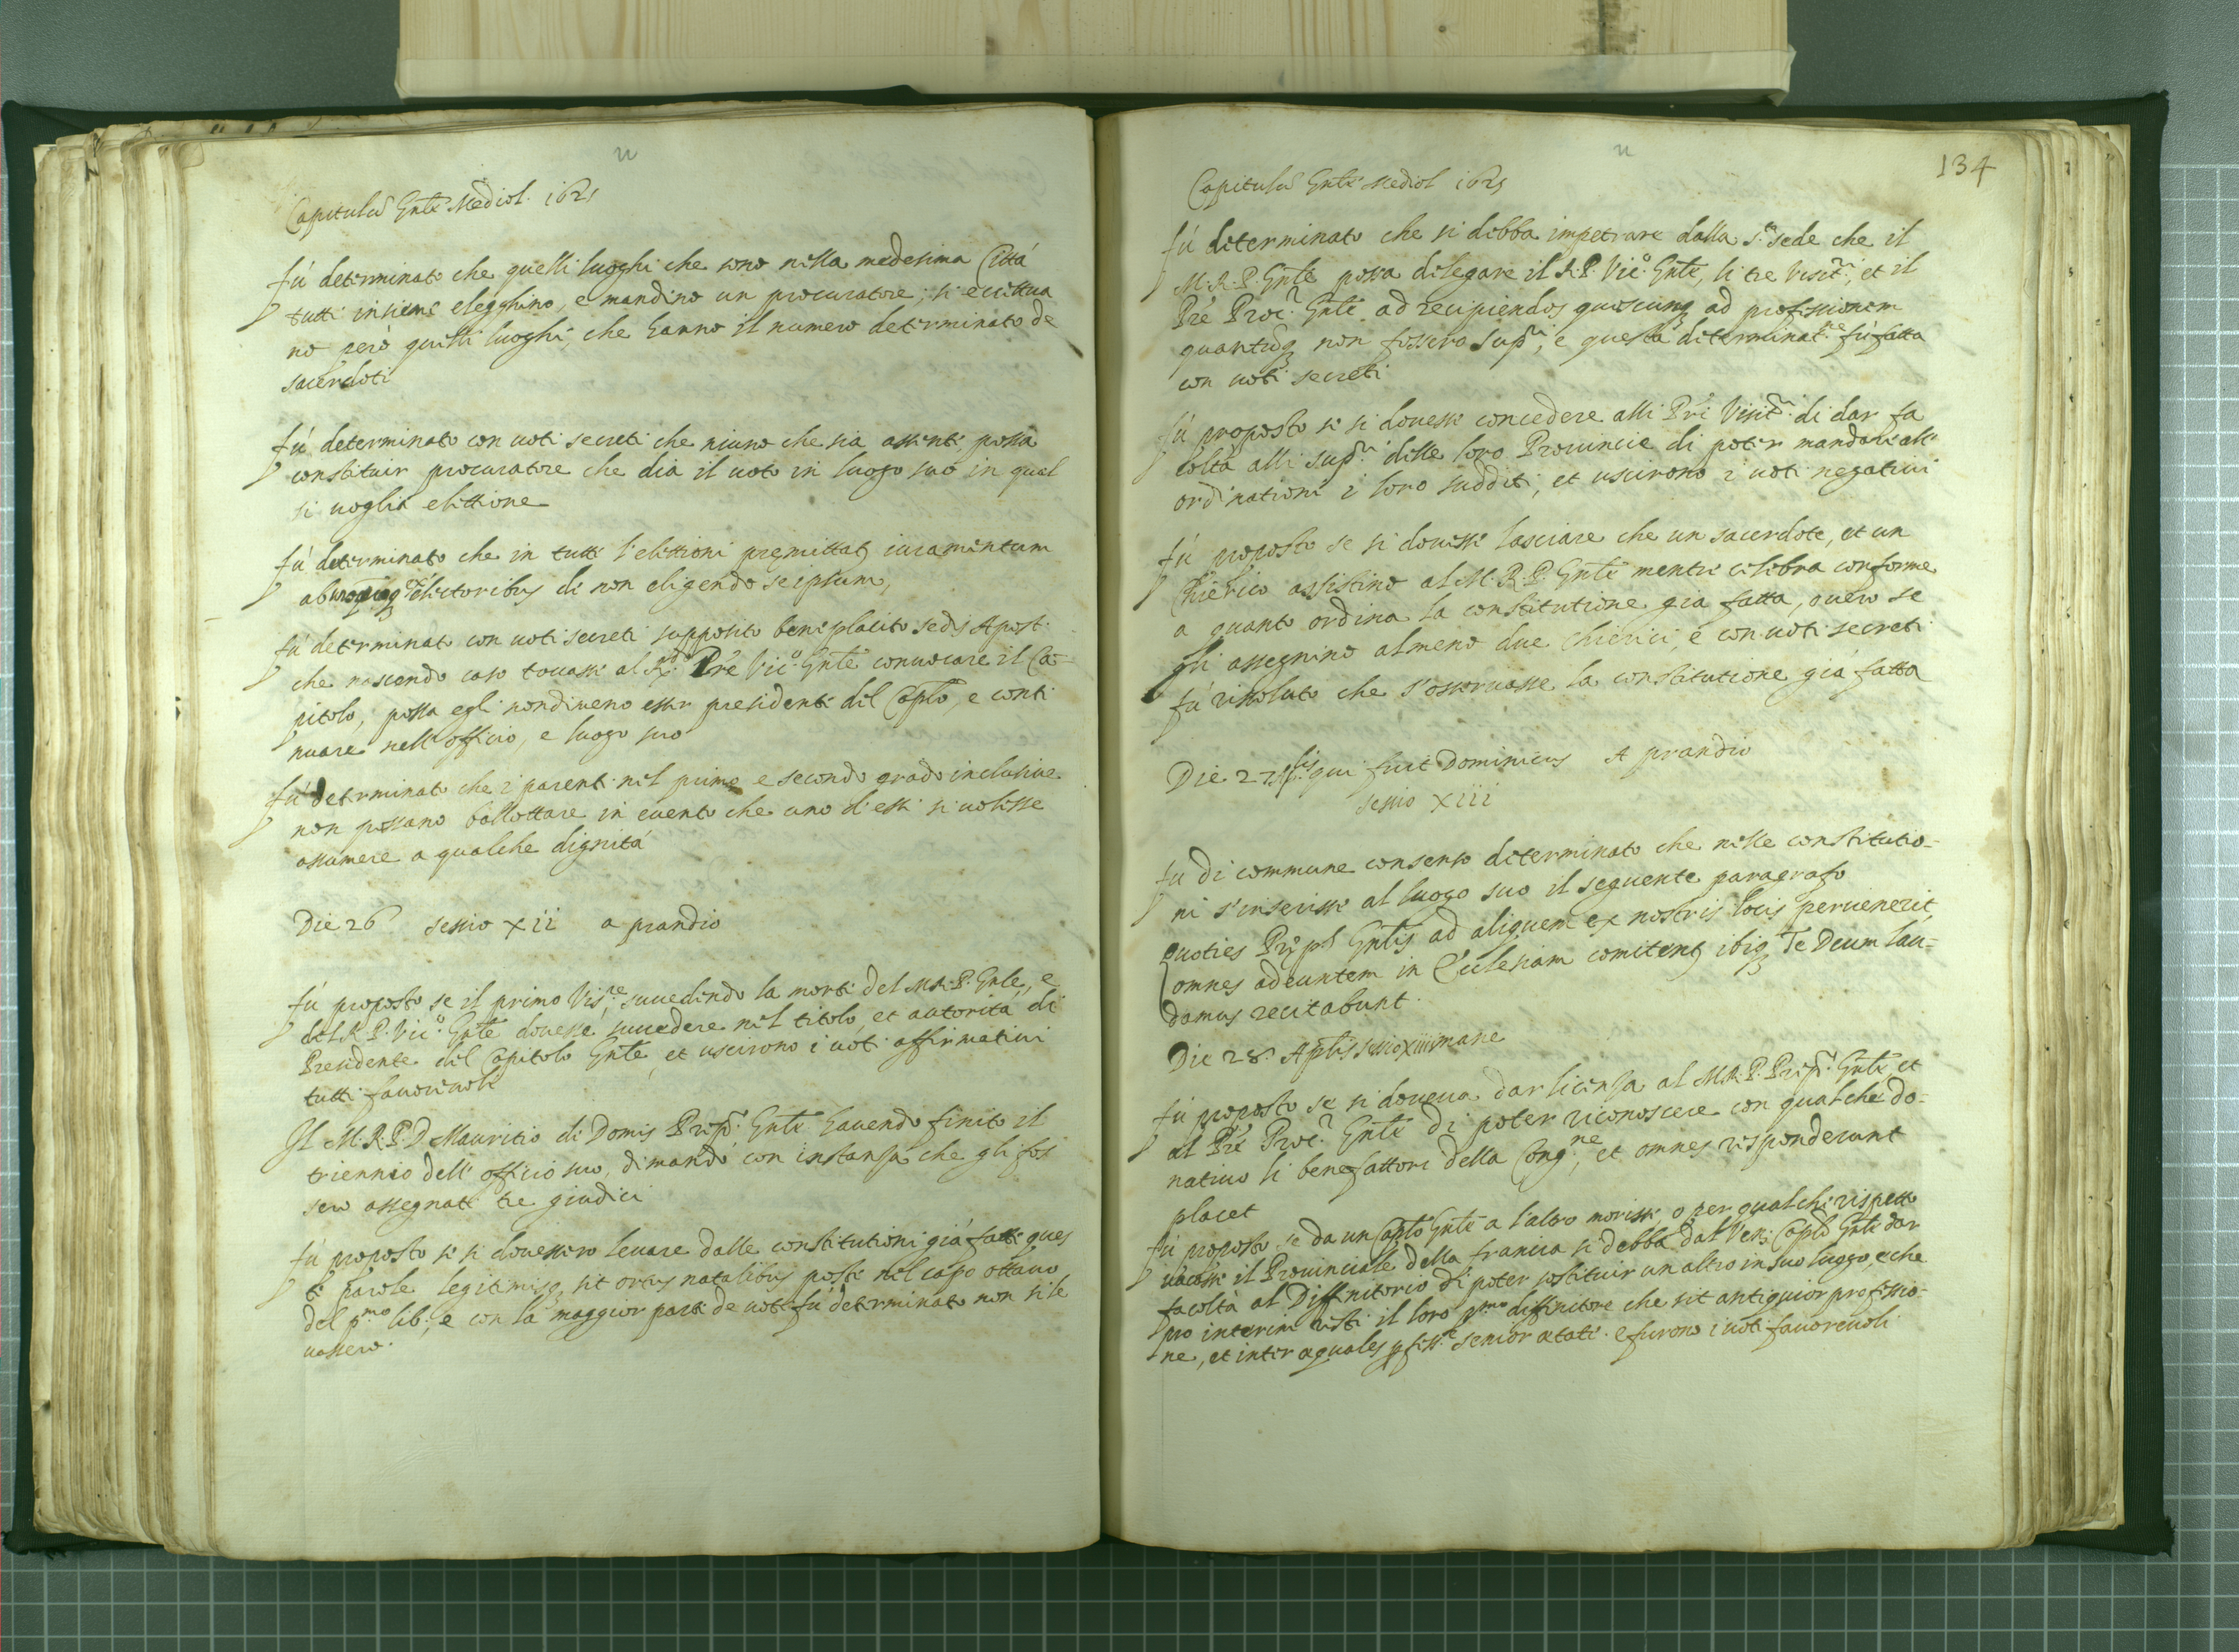 Capitulu Gnle Mediol. 1621
fú determinato che quelli luoghi che sono nella medesima Cittá
tutti insieme elegghino, e mandino un procuratore; si eccittua
no però quelli luoghi, che hanno il numero determinato de
sacerdoti
fú determinato con uoti secreti che niuno che sia assente, possa
constituir procuratore che dia il uoto in luogo suo in qual
si uoglia elettione
fú determinato che in tutte l'elettioni premittatur iuramentum
ab electoribus di non eligendo seipsum,
fú determinato con uoti secreti supposito beneplacito sedis Apost.
che nascendo caso toccasse al R.do Pré Vic.o Gnle conuocare il Ca-
pitolo, possa egli nondimeno esser presidente del Caplo, e conti
nuare nell'officio, e luogo suo
fú determinato che i parenti nel primo e secondo grado inclusiue
non possano ballottare in euento che uno d'essi si uolesse
assumere a qualche dignitá
Die 26 sessio xii a prandio
fú proposto se il primo Vis.re, succedendo la morte del M.R.P. Gnle, e
del R.P. Vic.o Gnle douesse succedere nel titolo, et autoritá di
Presidente del Capitolo Gnle, et uscirono i uoti affirmatiui
tutti fauoreuoli
Il M.R.P.D Mauritio di Domis Prep.to Gnle hauendo finito il
triennio dell'officio suo, dimandó con instanza che gli fos
sero assegnati tre giudici
fú proposto se si douessero leuare dalle constitutioni giá fatte ques
te parole legitimisq, sit ortus natalibus poste nel capo ottauo
del p.mo lib., e con la maggior parte de uoti fú determinato non si le
uassero.
134
Capitulu Gnle Mediol 1621
fú determinato che si debba impetrare dalla S.ta sede che il
M.R.P. Gnle possa delegare il R.P. Vic.o Gnle, li tre Visit.ri, et il
Pré Proc.r Gnle ad recipiendos quoscunq ad professionem
quantuq non fossero sup.ri, e questa determinat.ne fú fatta
con uoti secreti
fú proposto se si douesse concedere alli Pri Visit.ri di dar fa
coltá alli sup.ri delle loro Prouincie di poter mandare alle
ordinationi i loro sudditi, et uscirono i uoti negatiui
fú proposto se si douesse lasciare che un sacerdote, et un
Chierico assistino al M.R.P. Gnle mentre celebra conforme
a quanto ordina la constitutione giá fatta, ouero se
gli assegnino almeno due chierici, e con uoti secreti
fú rissoluto che s'osseruasse la constitutione giá fatta
Die 27 qui fuit Dominicus A prandio
sessio xiii
fu di commune consenso determinato che nelle constitutio-
ni s'inserisse al luogo suo il seguente paragrafo
quoties Prepst Gnlis ad aliquem ex nostris locis peruenerit,
omnes adeuntem in Ecclesiam comitent ibiq Te Deum lau-
damus recitabunt.
Die 28. Aplis sessio xiiii mane
fú proposto se si doueua dar licenza al M.R.P. Prep.to Gnle, et
al Pré Proc.r Gnle di poter riconoscere con qualche do-
natiuo li benefattori della Cong.ne, et omnes responderunt
placet
fú proposto se da un Caplo Gnle a l'altro morisse, o per qualche rispetto
uacasse il Prouinciale della francia si debba dal Ven. Caplo Gnle dar
facoltá al Diffinitorio di poter sostituir un altro in suo luogo, e che
pro interim resti il loro p.mo diffinitore che sit antiquior professio-
ne, et inter aequales senior aetate. e furono i uoti fauoreuoli.